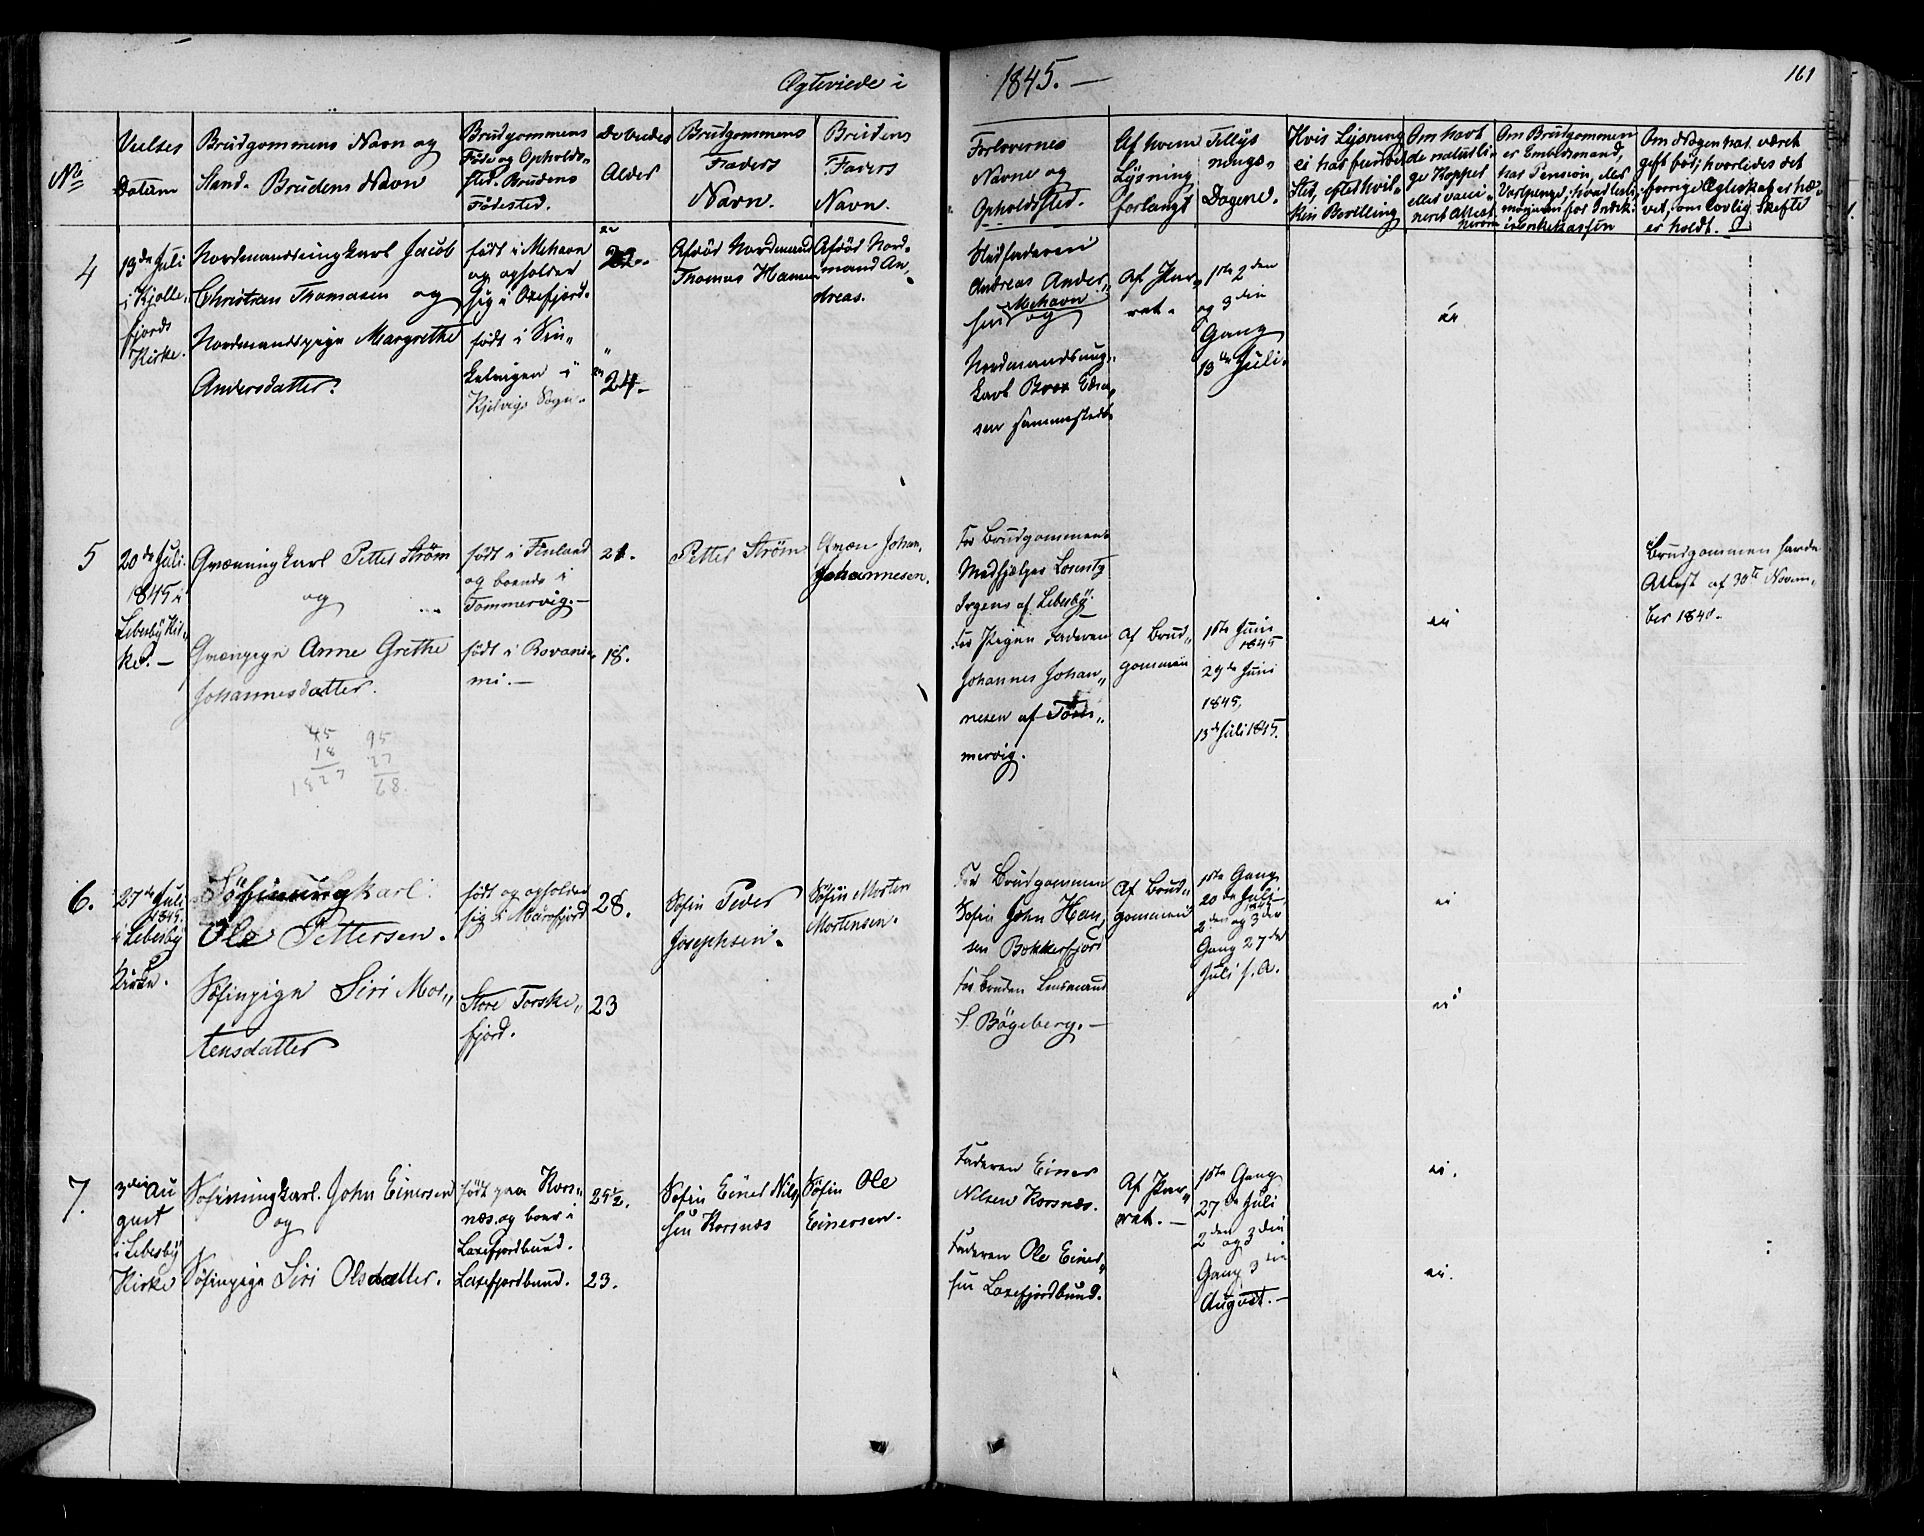 Ægteviede i 1845.—
161
No
Vielses
Datum
Brudgommens Navn og
Stand. Brudens Navn
Brudgommens
Føde og Opholds-
sted. Brudens
Fødested.
Alder
Brudgommens
Faders
Navn.
Brudens
Faders
Navn.
Forlovernes
Navne og
Opholdssted.
Af hvem
Lysning
forlangt
Tillys
nings-
Dagene.
Hvis Lysning
ei har fundet
Sted, efter hvil-
ken Bevilling
Om havt
de naturli-
ge Kopper
eller vacci-
neret Attest
herom
Om Brudgommen
er Embedsmand,
har Pension, eller
Om Nogen har været
gift før; hvorledes det
forrige Ægteskab er hæ-
vet, om lovlig Skifte
er holdt.
4
13de Juli
i Kjølle-
fjords
Kirke.
Nordmandsungkarl Jacob
Christian Thomasen og
Nordmandspige Margrethe
Andersdatter.
født i Mehavn
og opholder
sig i Oxefjord.
født i
Kjelvigs Sogn.
22.
24.
Afdød Nordmand
Thomas Hansen
Afdød Nord-
mand An-
dreas.
Stedfaderen
Andreas Ander-
sen Mehavn
og
Nordmandsung-
karl
sen sammesteds
Af Par-
ret.
1ste 2den
og 3die
Gang
13de Juli.
ei
5
20de Juli
1845 i
Lebesby Kir-
ke.—
Qvænungkarl Petter Strøm
og
Qvænpige Anne Grethe
Johannesdatter.
født i Finland
og boende i
Tommervig.—
født i Rovanie-
mi.—
21.
18.
Petter Strøm
Qvæn Johan,
Johannesen.
For Brudgommen
Medhjælper Lorentz
Irgens af Lebesby.
For Pigen Faderen
Johannes Johan-
nesen af Tom-
mervig.
Af Brud-
gommen
1ste Juni
1845
29de Juni
1845,
13de Juli 1845.
ei
Brudgommen havde
Attest af 30te Novem-
ber 1840.
45
18
1827
95
27
68
6.
27de Juli
1845.
i Lebesby
Kirke.
Søfinungkarl
Ole Pettersen.
Søfinpige Siri Mor-
tensdatter
født og opholder
sig i Mårøfjord
Store Torske-
fjord.
28.
23
Søfin Peder
Josephsen.
Søfin Morten
Mortensen.
For Brudgommen
Søfin John Han-
sen Bekkerfjord
For Bruden Lensmand
S. Bögeberg.—
Af Brud-
gommen
1ste Gang
20de Juli
2den og 3die
Gang 27de
Juli s. A.
ei
ei
7.
3die Au
gust
i Lebesby
Kirke
Søfinungkarl. John Einersen
og
Søfinpige Siri Olsdatter.
født paa Kors-
næs. og boer i
Laxefjordbund.
Laxefjordbund.
25½.
23.
Søfin Einer Nil-
sen Korsnæs
Søfin Ole
Einersen.
Faderen Einer
Nilsen Korsnæs.
Faderen Ole Einer-
sen Laxefjordbund.
Af Par-
ret.—
1ste Gang
27de Juli
2den og 3die
Gang 3die
August.—
ei.
ei.